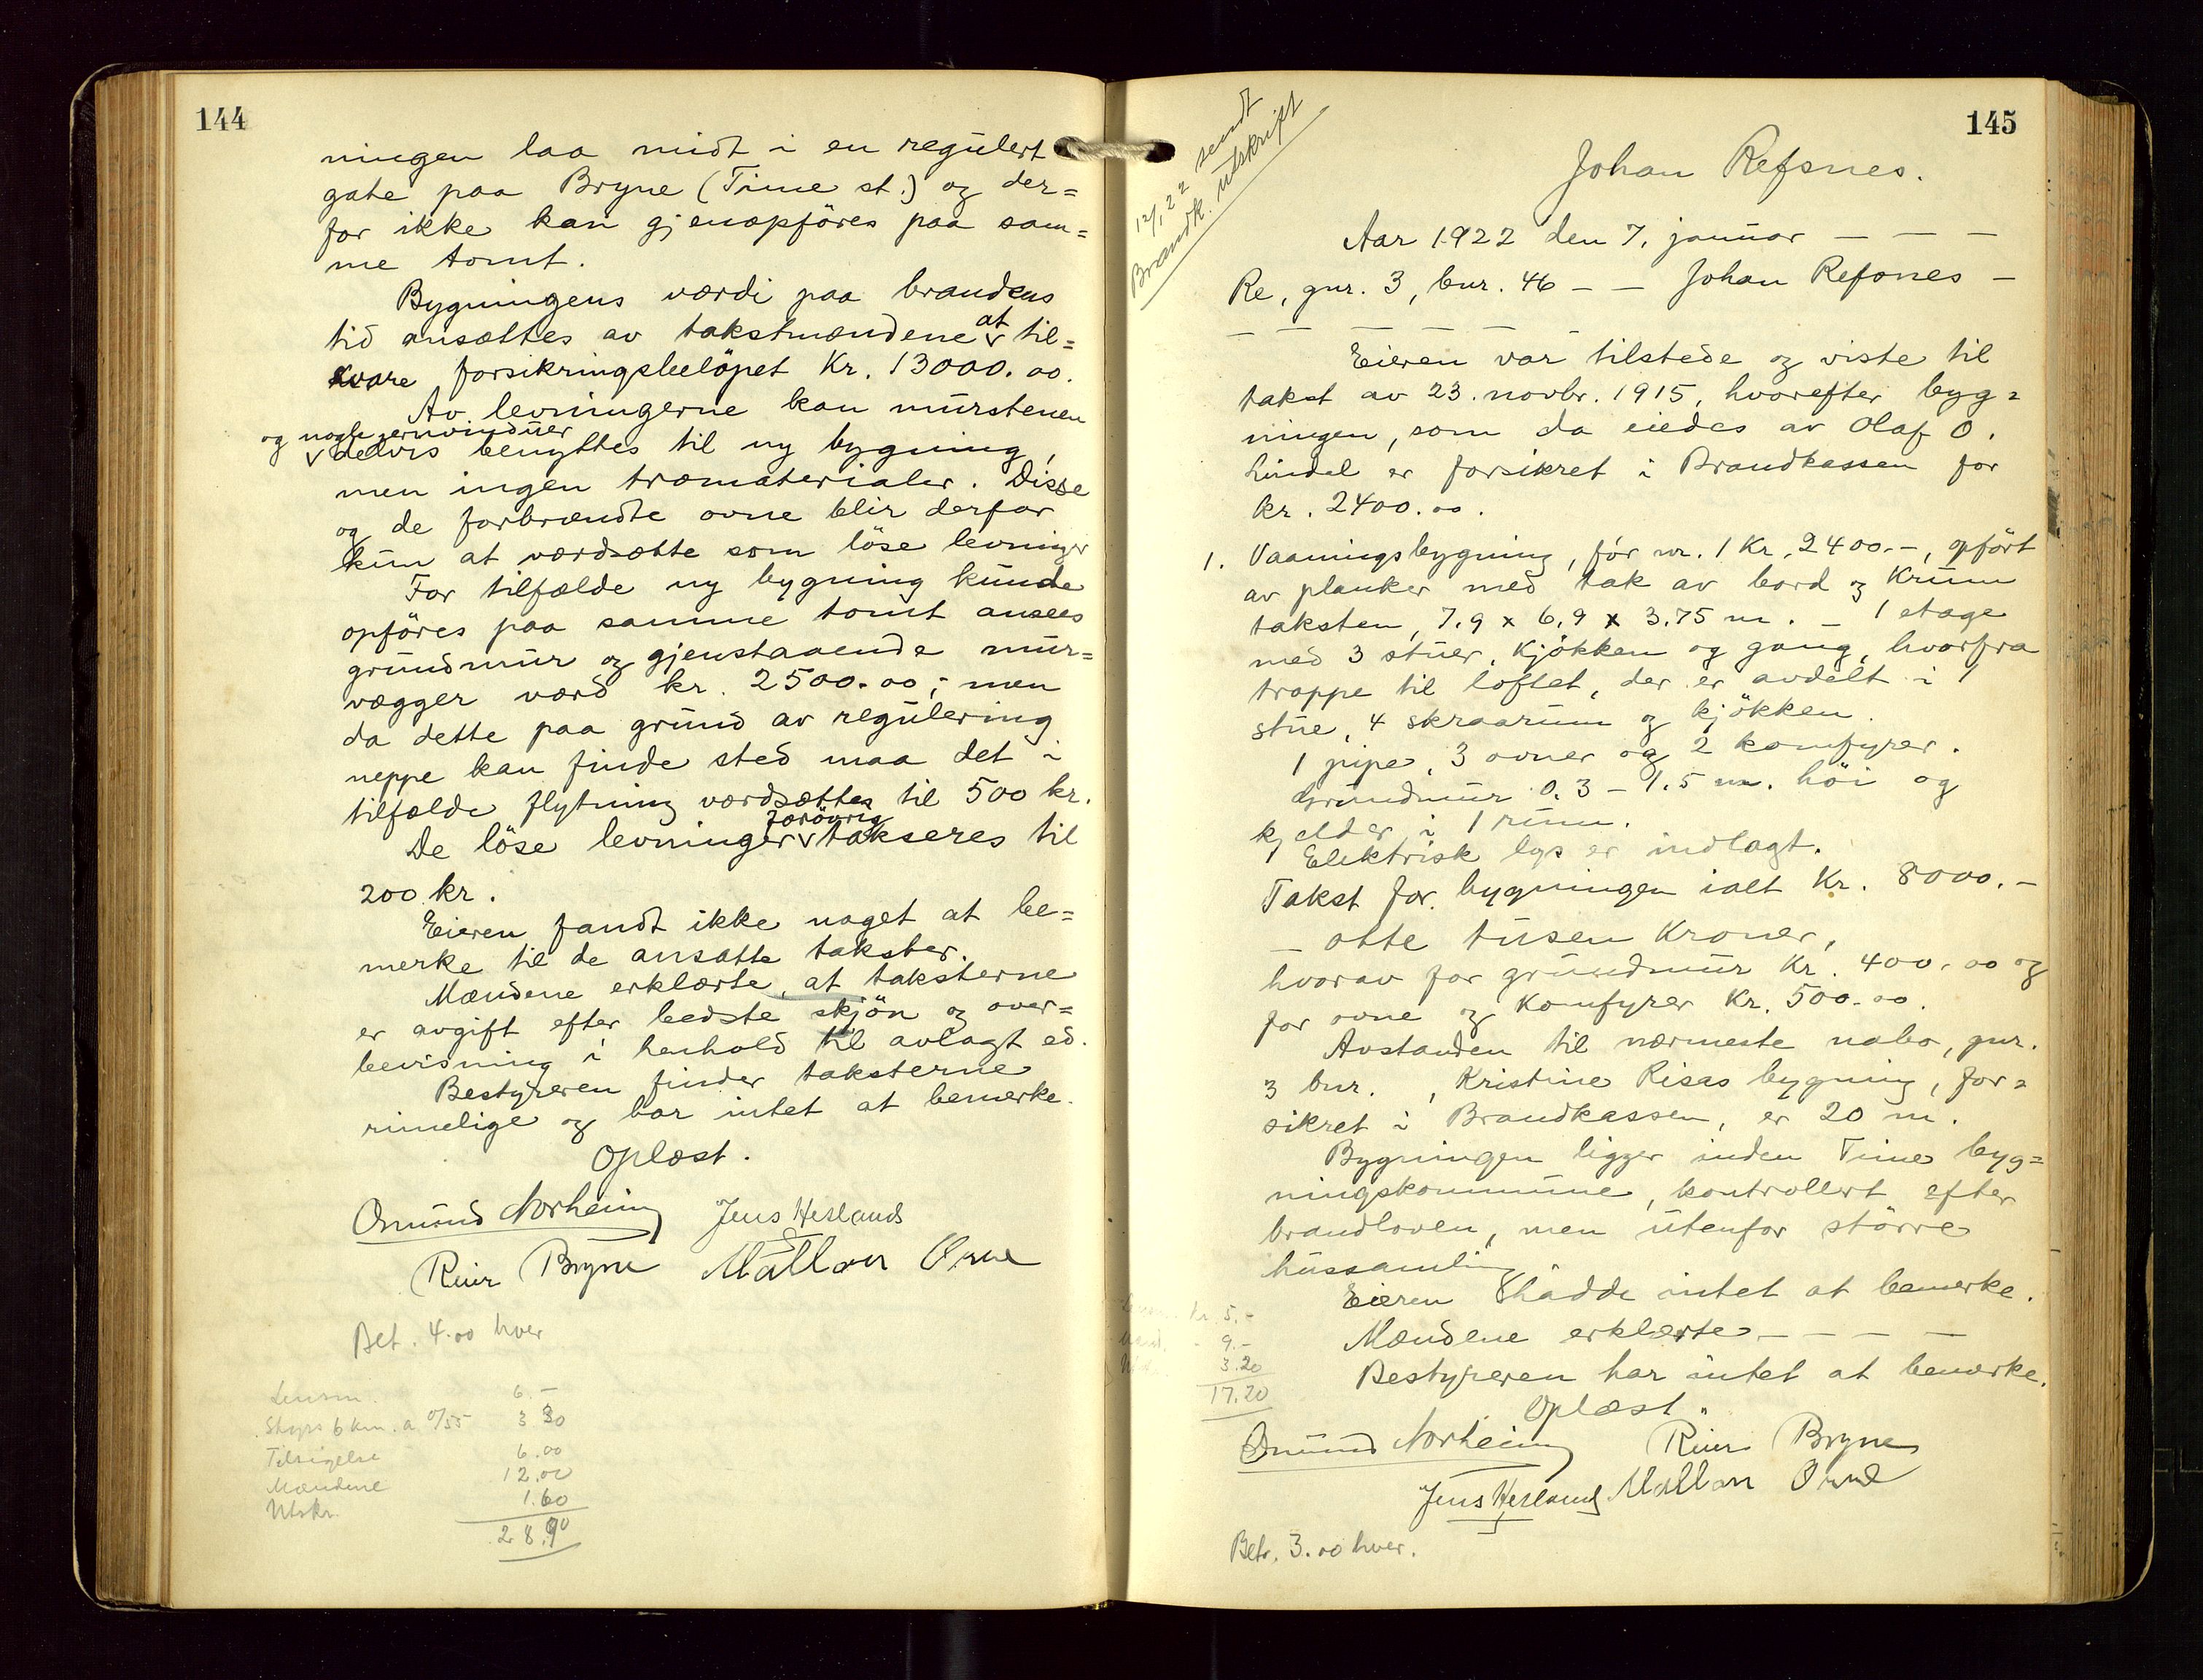 144
ningen laa midt i en regulert
gate paa Bryne (Time st.) og der=
for ikke kan gjenopföres paa sam=
me tomt.
Bygningens værdi paa brandens
tid ansættes av takstmændene at til=
svare forsikringsbelöpet Kr. 13000.00.
Av levningerne kan murstenen
og nogle jernvinduer
delvis benyttes til ny bygning,
men ingen træmaterialer. Disse
og de forbrændte ovne blir derfor
kun at værdsætte som löse levninger
For tilfælde ny bygning kunde
opföres paa samme tomt ansees
grundmur og gjenstaaende mur=
vægger værd kr. 2500.00; men
da dette paa grund av regulering
neppe kan finde sted maa det i
tilfælde flytning værdsættes til 500 kr.
De löse levninger forövrig takseres til
200 kr.
Eieren fandt ikke noget at be=
merke til de ansatte takster.
Mændene erklærte, at taksterne
er avgift efter bedste skjön og over=
bevisning i henhold til avlagt ed.
Bestyreren finder taksterne
rimelige og har intet at bemerke.
Oplæst.
Omund Norheim Jens Hetland
Reier Bryne Mallon Orne
Bet. 4.00 hver
Lensm. 6.–
Skyss 6 km. a 0/55 3 30
Tilsigelse 6.00
Mændene 12.00
Utskr. 1.60
28.90
145
12/1 22 sendt
Brandk. utskrift
Johan Refsnes.
Aar 1922 den 7. januar – – –
Re, gnr. 3, bnr. 46 – – Johan Refsnes –
– – – – – –
Eieren var tilstede og viste til
takst av 23. novbr. 1915, hvorefter byg=
ningen, som da eiedes av Olaf O.
Lindal er forsikret i Brandkassen for
kr. 2400.00.
1. Vaaningsbygning, för nr. 1 Kr. 2400.–, opfört
av planker med tak av bord og Krum
taksten, 7.9 x 6.9 x 3.75 m. – 1 etage
med 3 stuer, Kjökken og gang, hvorfra
trappe til loftet, der er avdelt i 1
stue, 4 skraarum og kjökken.
1 pipe, 3 ovner og 2 komfyrer.
Grundmur 0.3 – 1.5 m. höi og
kjelder i 1 rum.
Elektrisk lys er indlagt.
Takst for bygningen ialt Kr. 8000.–
– otte tusen Kroner,
hvorav for grundmur Kr. 400.00 og
for ovne og Komfyrer Kr. 500.00.
Avstanden til nærmeste nabo, gnr.
3 bnr. , Kristine Risas bygning, for=
sikret i Brandkassen, er 20 m.
Bygningen ligger inden Time byg=
ningskommune, kontrollert efter
brandloven, men utenfor större
hussamling
Eieren hadde intet at bemerke.
Mændene erklærte – – – –
Bestyreren har intet at bemerke.
Oplæst.
Kr. 5.–
9.–
3.20
17.20
Omund Norheim Reier Bryne
Jens Hetland Mallon Orne
Betr. 3.00 hver.